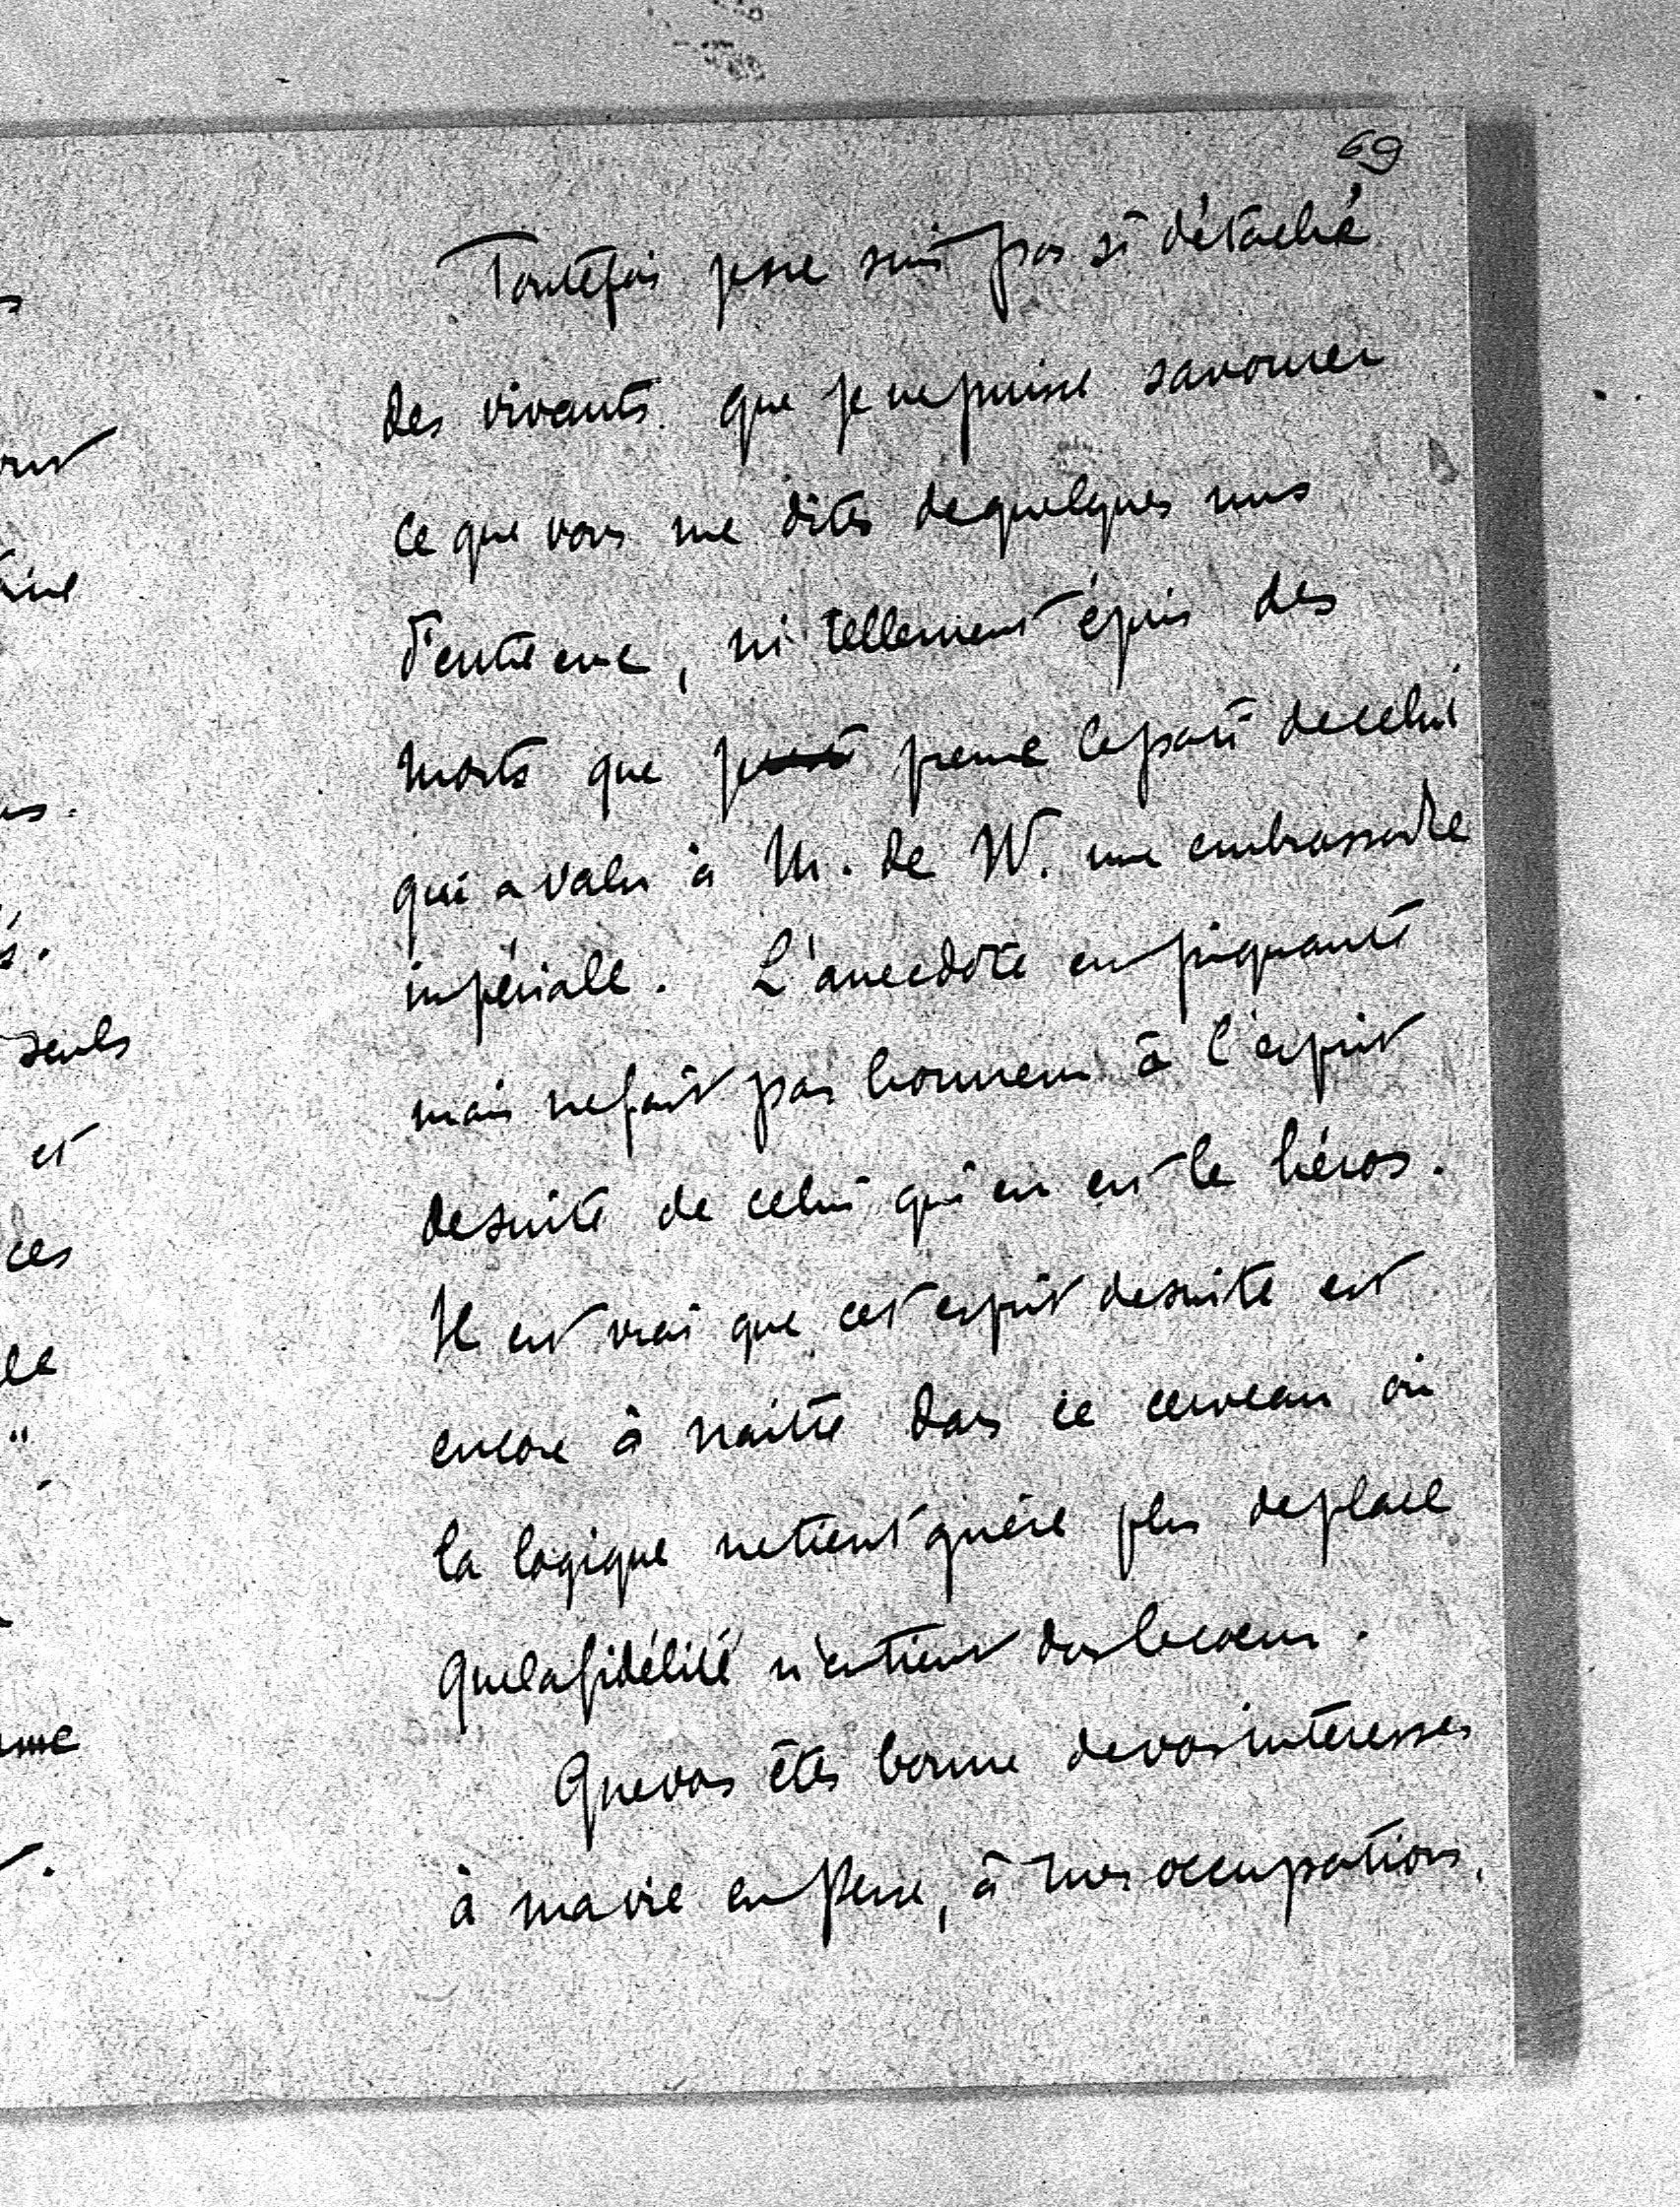 69
Toutefois je ne suis pas si détaché
des vivants que je ne puisse savourer
ce que vous me dites de quelques uns
d'entre eux, ni tellement épris des
morts que je prenne le parti de celui
qui a valu à M. de W. une embrassade
impériale. L'anecdote est piquante
mais ne fait pas honneur à l'esprit
de suite de celui qui en est le héros.
Il est vrai que cet esprit de suite est
encore à naître dans ce cerveau où
la logique ne tient guère plus de place
que la fidélité n'en tient dans le coeur.
Que vous êtes bonne de vous intéresser
à ma vie en Perse, à mes occupations,
seuls
et
ces